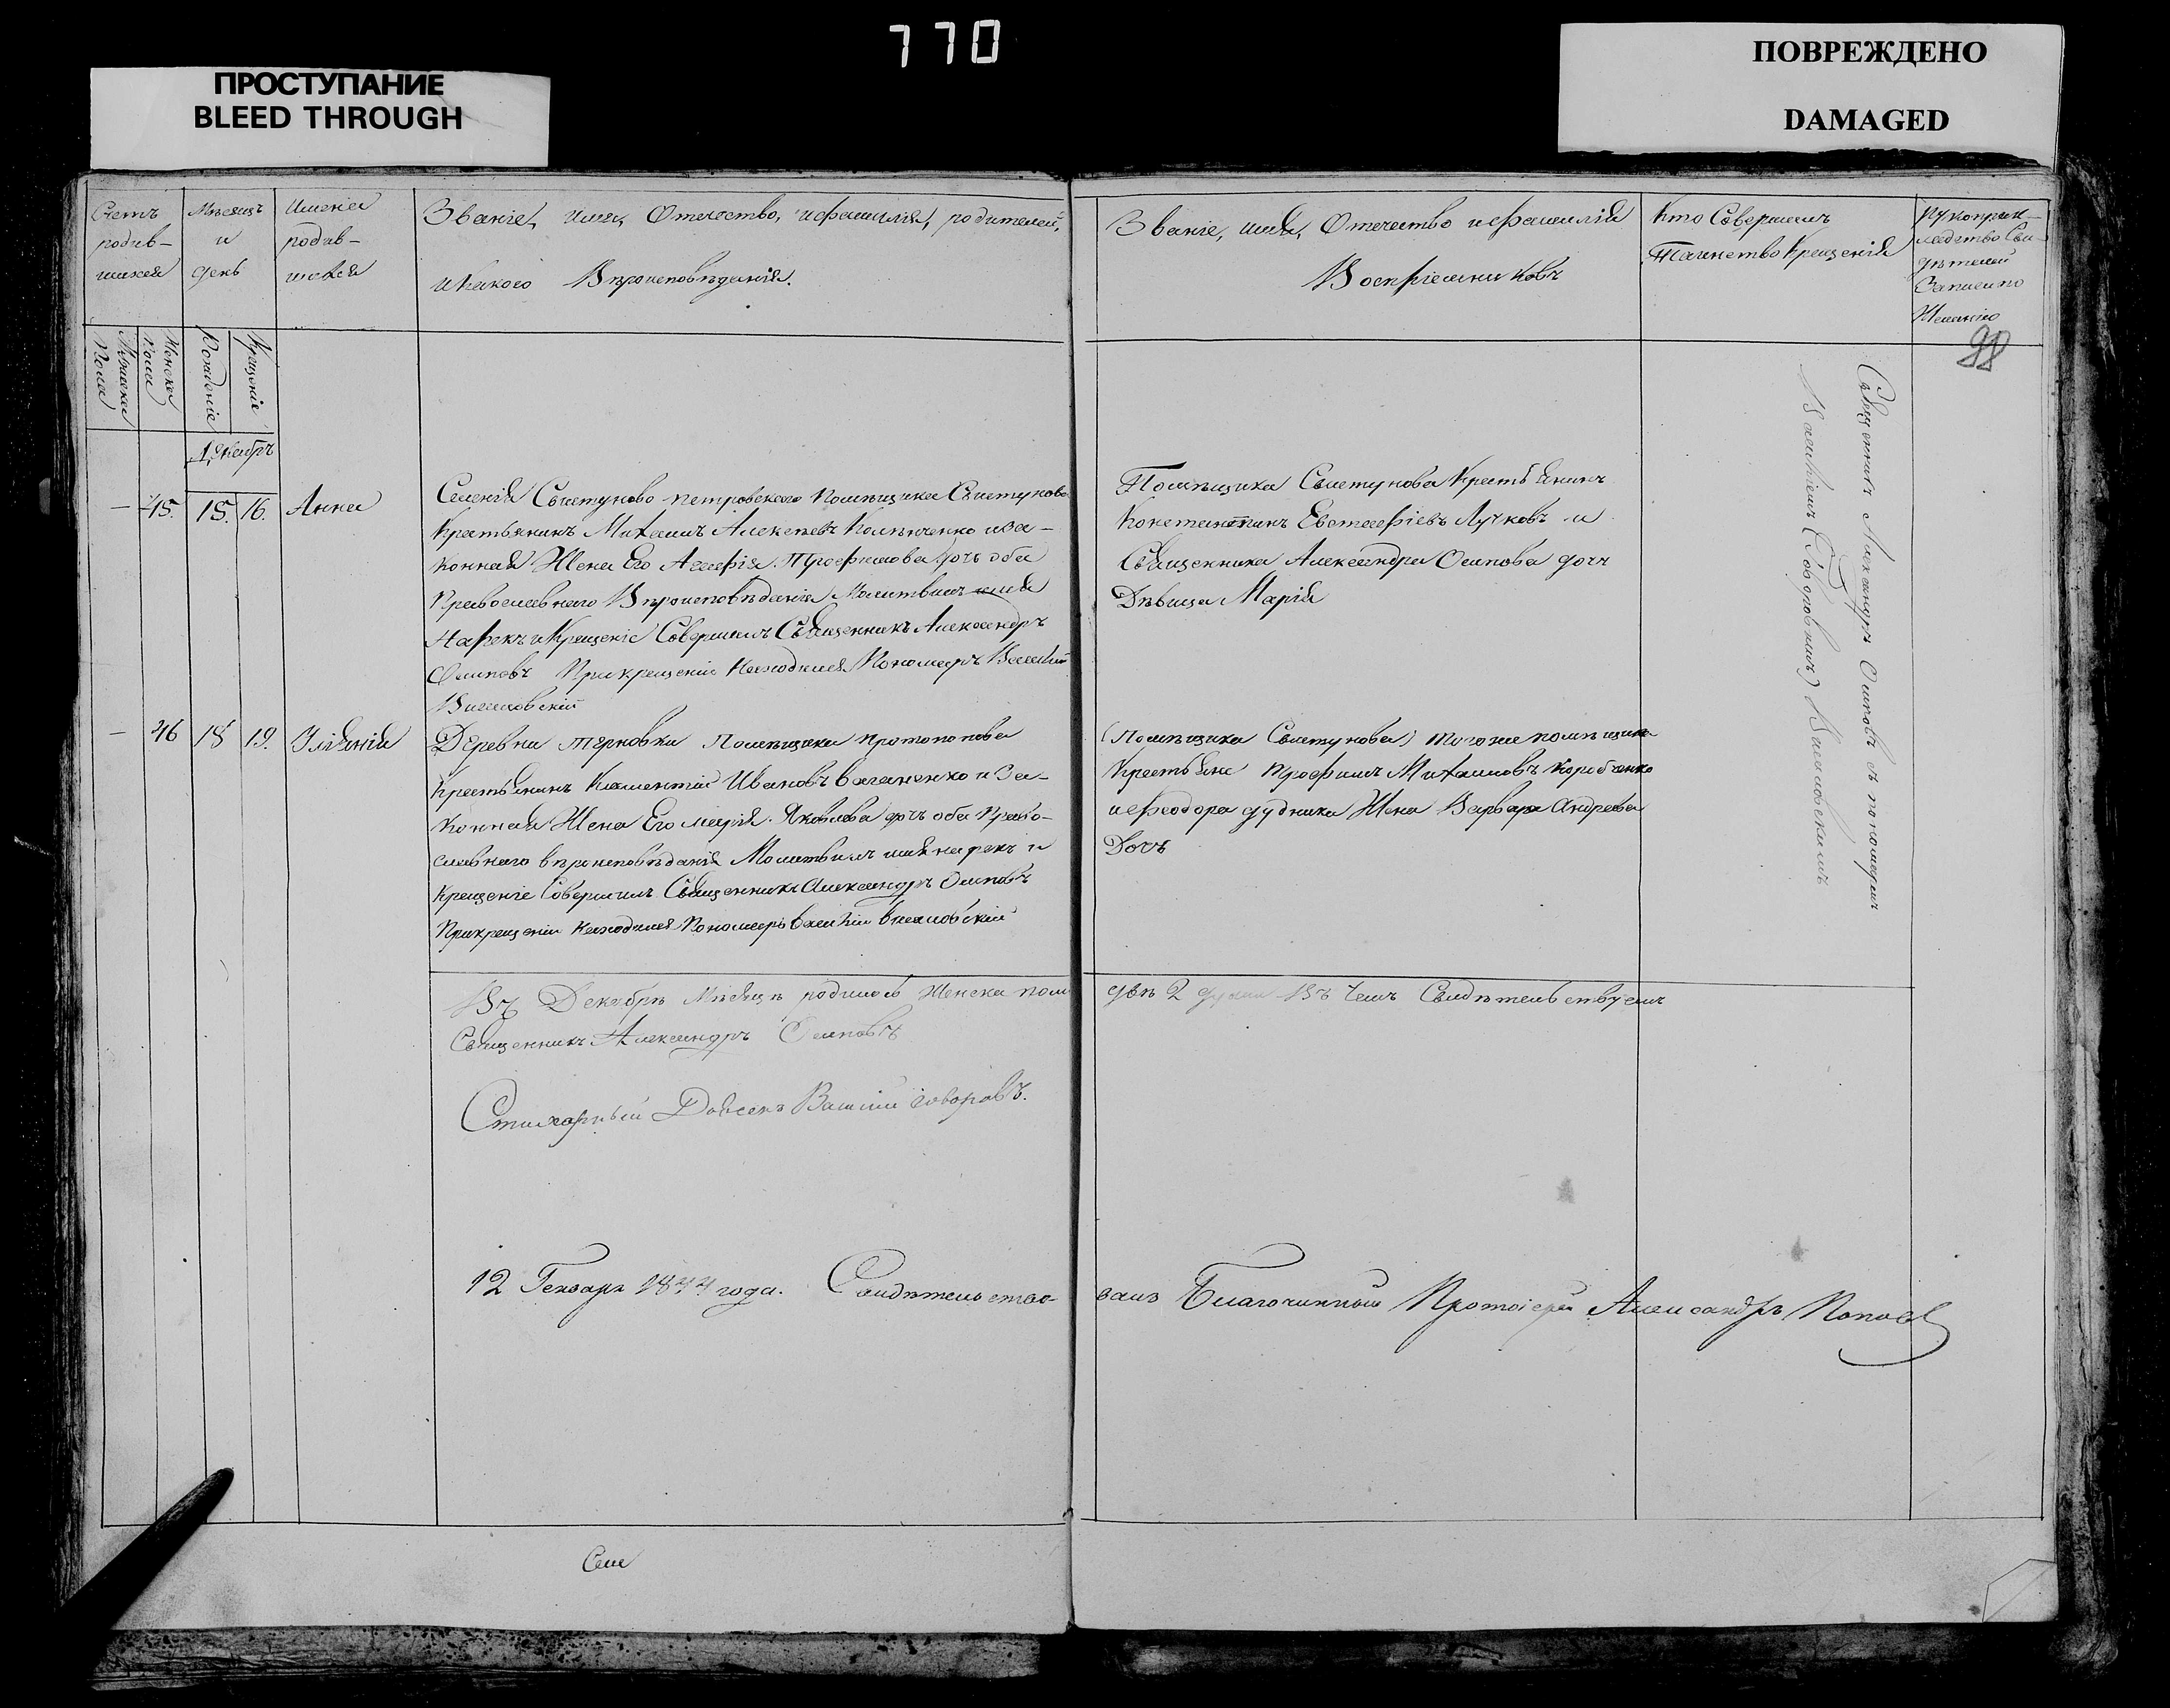 770
ПРОСТУПАНИЕ
BLEED THROUGH
ПОВРЕЖДЕНО
DAMAGED
Счетъ
родив-
шихся
Мѣсяцъ
и
день
Имена
родив-
шихся
Званіе, имя, Отечество, и фамилія, родителей,
и какого Вѣроисповѣданія.
Званіе, имя, Отечество и фамилія
Воспріемниковъ
Кто Совершилъ
Таинство Крещенія
Рукоприк-
ладство Сви-
дѣтелей
Записи по
Желанію
98
Мужска
Пола
Женска
Пола
Рожденіе
Крещеніе
Декабрь
— 45. 15. 16. Анна
Селенія Свистуново Петровского Помѣщика Свистунова
Крестьянинъ Михаилъ Алексѣевъ и За-
конная Жена Его Агафія Трофимова дочь оба
Православнаго Вѣроисповѣданія Молитвилъ имя
Нарекъ и Крещеніе Совершилъ Священникъ Александръ
Осиповъ При крещеніи Находился Пономарь Василій
Помѣщика Свистунова Крестьянинъ
Константинъ Евстафіевъ Лучковъ и
Священника Александра Осипова дочь
Дѣвица Марія
— 46 18 19. Уліянія
Деревни Терновки Помѣщика Протопопова
Крестьянинъ Климентій Ивановъ Ваганенко и За-
конная Жена Его Марія Яковлева дочь оба Право-
славнаго вѣроисповѣданія Молитвилъ имя нарекъ и
Крещеніе Совершилъ Священникъ Александръ Осиповъ
При крещеніи Находился Пономарь Василій
(Помѣщика Свистунова) того же помѣщика
Крестьяне Трофимъ Михаиловъ Коробченко
и Феодора дудника Жена Варвара Андреева
Дочь
Священникъ Александръ Осиповъ съ пономаремъ
Въ Декабрѣ Мѣсяцѣ родилось Женска пола
двѣ 2 души Въ Чемъ Свидѣтельствуемъ
Священникъ Александръ Осиповъ
Стихарный Дьячекъ Василій Говоровъ.
12 Генваря 1844 года. Свидѣтельство-
валъ Благочинный Протоіерей Александръ Поповъ